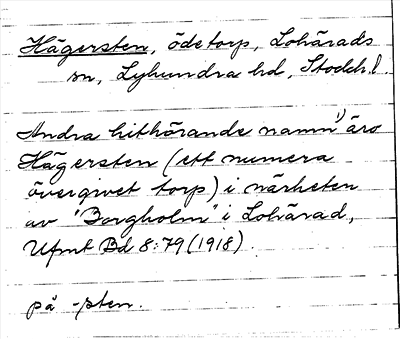 Hägersten, ödetorp, Lohärads
sn, Lyhundra hd, Stockh.l.
Andra hithörande namn¹) äro
Hägersten (ett numera
övergivet torp) i närheten
av "Borgholm" i Lohärad,
Ufmt Bd 8:79 (1918).
på -sten.